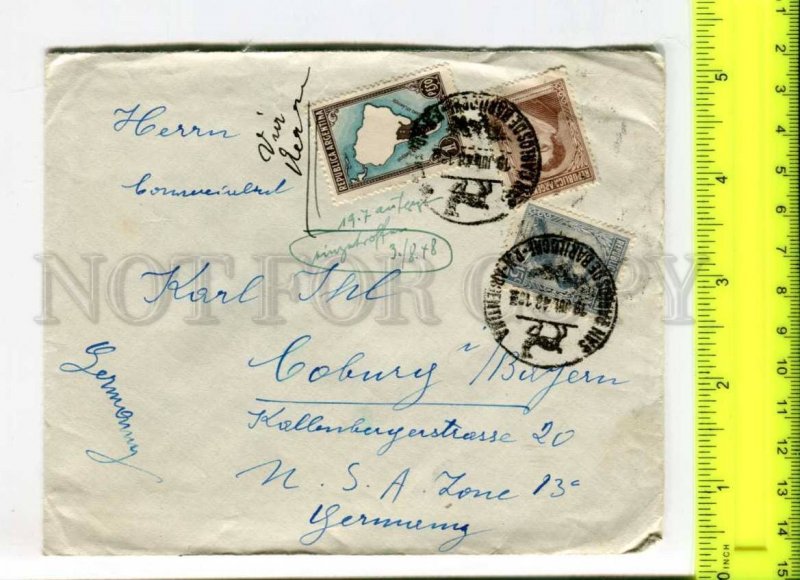 Herrn
Via
REPUBLICA ARGENTINA
1
PESO
19.7
eingetroffen
3./8.48
SAN CARLOS DE BARILOCHE
ARGENTINA
NOT FOR COPY
Karl Ihl
Germany
Coburg / Bayern
Kallenbergerstrasse 20
N. S. A. Zone 13a
Germany
INCH
0 1 2 3 4 5
1 2 3 4 5 6 7 8 9 10 11 12 13 14 15